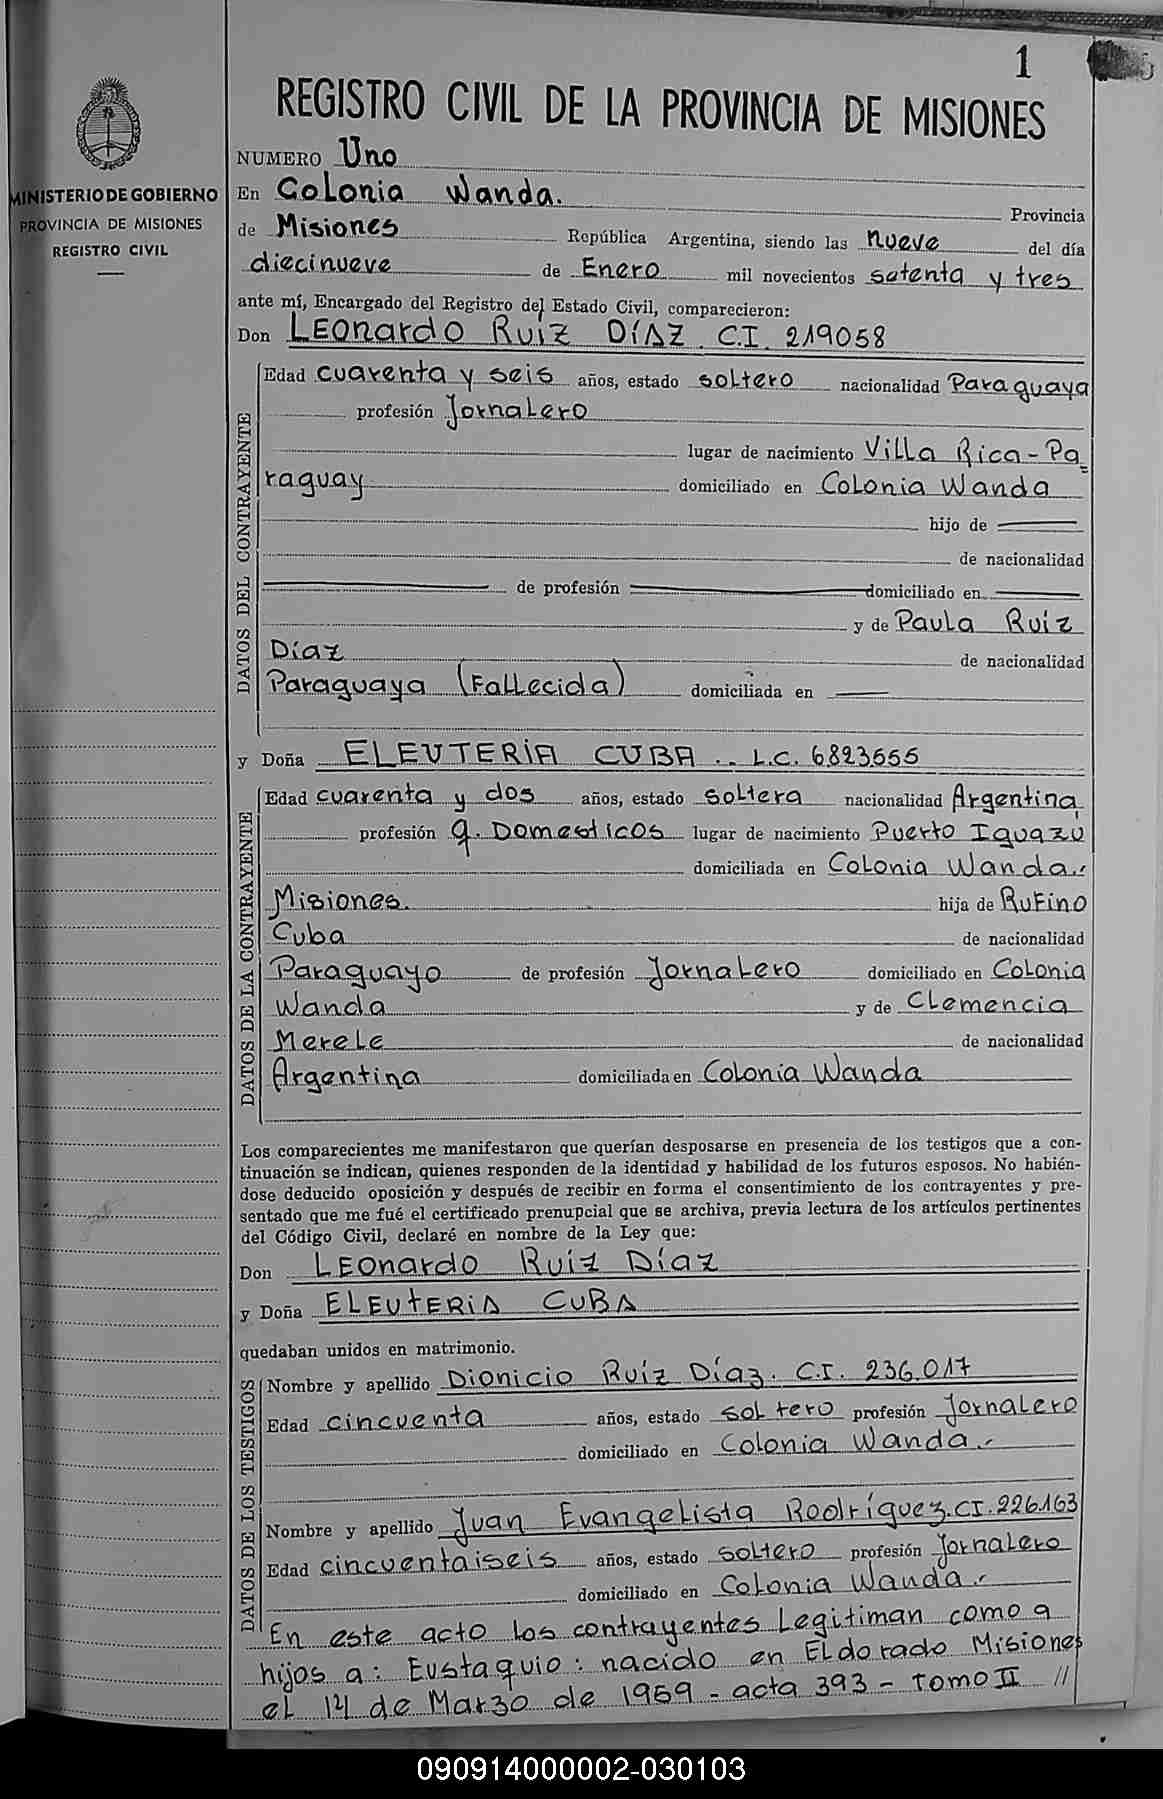 1
REGISTRO CIVIL DE LA PROVINCIA DE MISIONES
MINISTERIO DE GOBIERNO
PROVINCIA DE MISIONES
REGISTRO CIVIL
NUMERO Uno
En Colonia Wanda. Provincia
de Misiones República Argentina, siendo las nueve del día
diecinueve de Enero mil novecientos setenta y tres
ante mí, Encargado del Registro del Estado Civil, comparecieron:
Don LEonardo Ruiz DíAZ. C.I. 219058
DATOS DEL CONTRAYENTE
Edad cuarenta y seis años, estado soltero nacionalidad Paraguaya
profesión Jornalero
lugar de nacimiento Villa Rica-Pa=
raguay domiciliado en Colonia Wanda
hijo de
de nacionalidad
de profesión domiciliado en
y de Paula Ruiz
Díaz de nacionalidad
Paraguaya (Fallecida) domiciliada en
y Doña ELEUTERIA CUBA .. L.C. 6823555
DATOS DE LA CONTRAYENTE
Edad cuarenta y dos años, estado soltera nacionalidad Argentina
profesión q. Domesticos lugar de nacimiento Puerto Iguazú
domiciliada en Colonia Wanda.-
Misiones. hija de Rufino
Cuba de nacionalidad
Paraguayo de profesión Jornalero domiciliado en Colonia
Wanda y de Clemencia
Merele de nacionalidad
Argentina domiciliada en Colonia Wanda
Los comparecientes me manifestaron que querían desposarse en presencia de los testigos que a con-
tinuación se indican, quienes responden de la identidad y habilidad de los futuros esposos. No habién-
dose deducido oposición y después de recibir en forma el consentimiento de los contrayentes y pre-
sentado que me fué el certificado prenupcial que se archiva, previa lectura de los artículos pertinentes
del Código Civil, declaré en nombre de la Ley que:
Don LEonardo Ruiz Díaz
y Doña ELEUTERIA CUBA
quedaban unidos en matrimonio.
DATOS DE LOS TESTIGOS
Nombre y apellido Dionicio Ruíz Díaz. C.I. 236.017
Edad cincuenta años, estado soltero profesión Jornalero
domiciliado en Colonia Wanda.-
Nombre y apellido Juan Evangelista Rodríguez. CI. 226.163
Edad cincuentaiseis años, estado soltero profesión Jornalero
domiciliado en Colonia Wanda.-
En este acto los contrayentes Legitiman como a
hijos a: Eustaquio: nacido en Eldorado Misiones
el 14 de Marzo de 1959 - acta 393 - Tomo II //
090914000002-030103